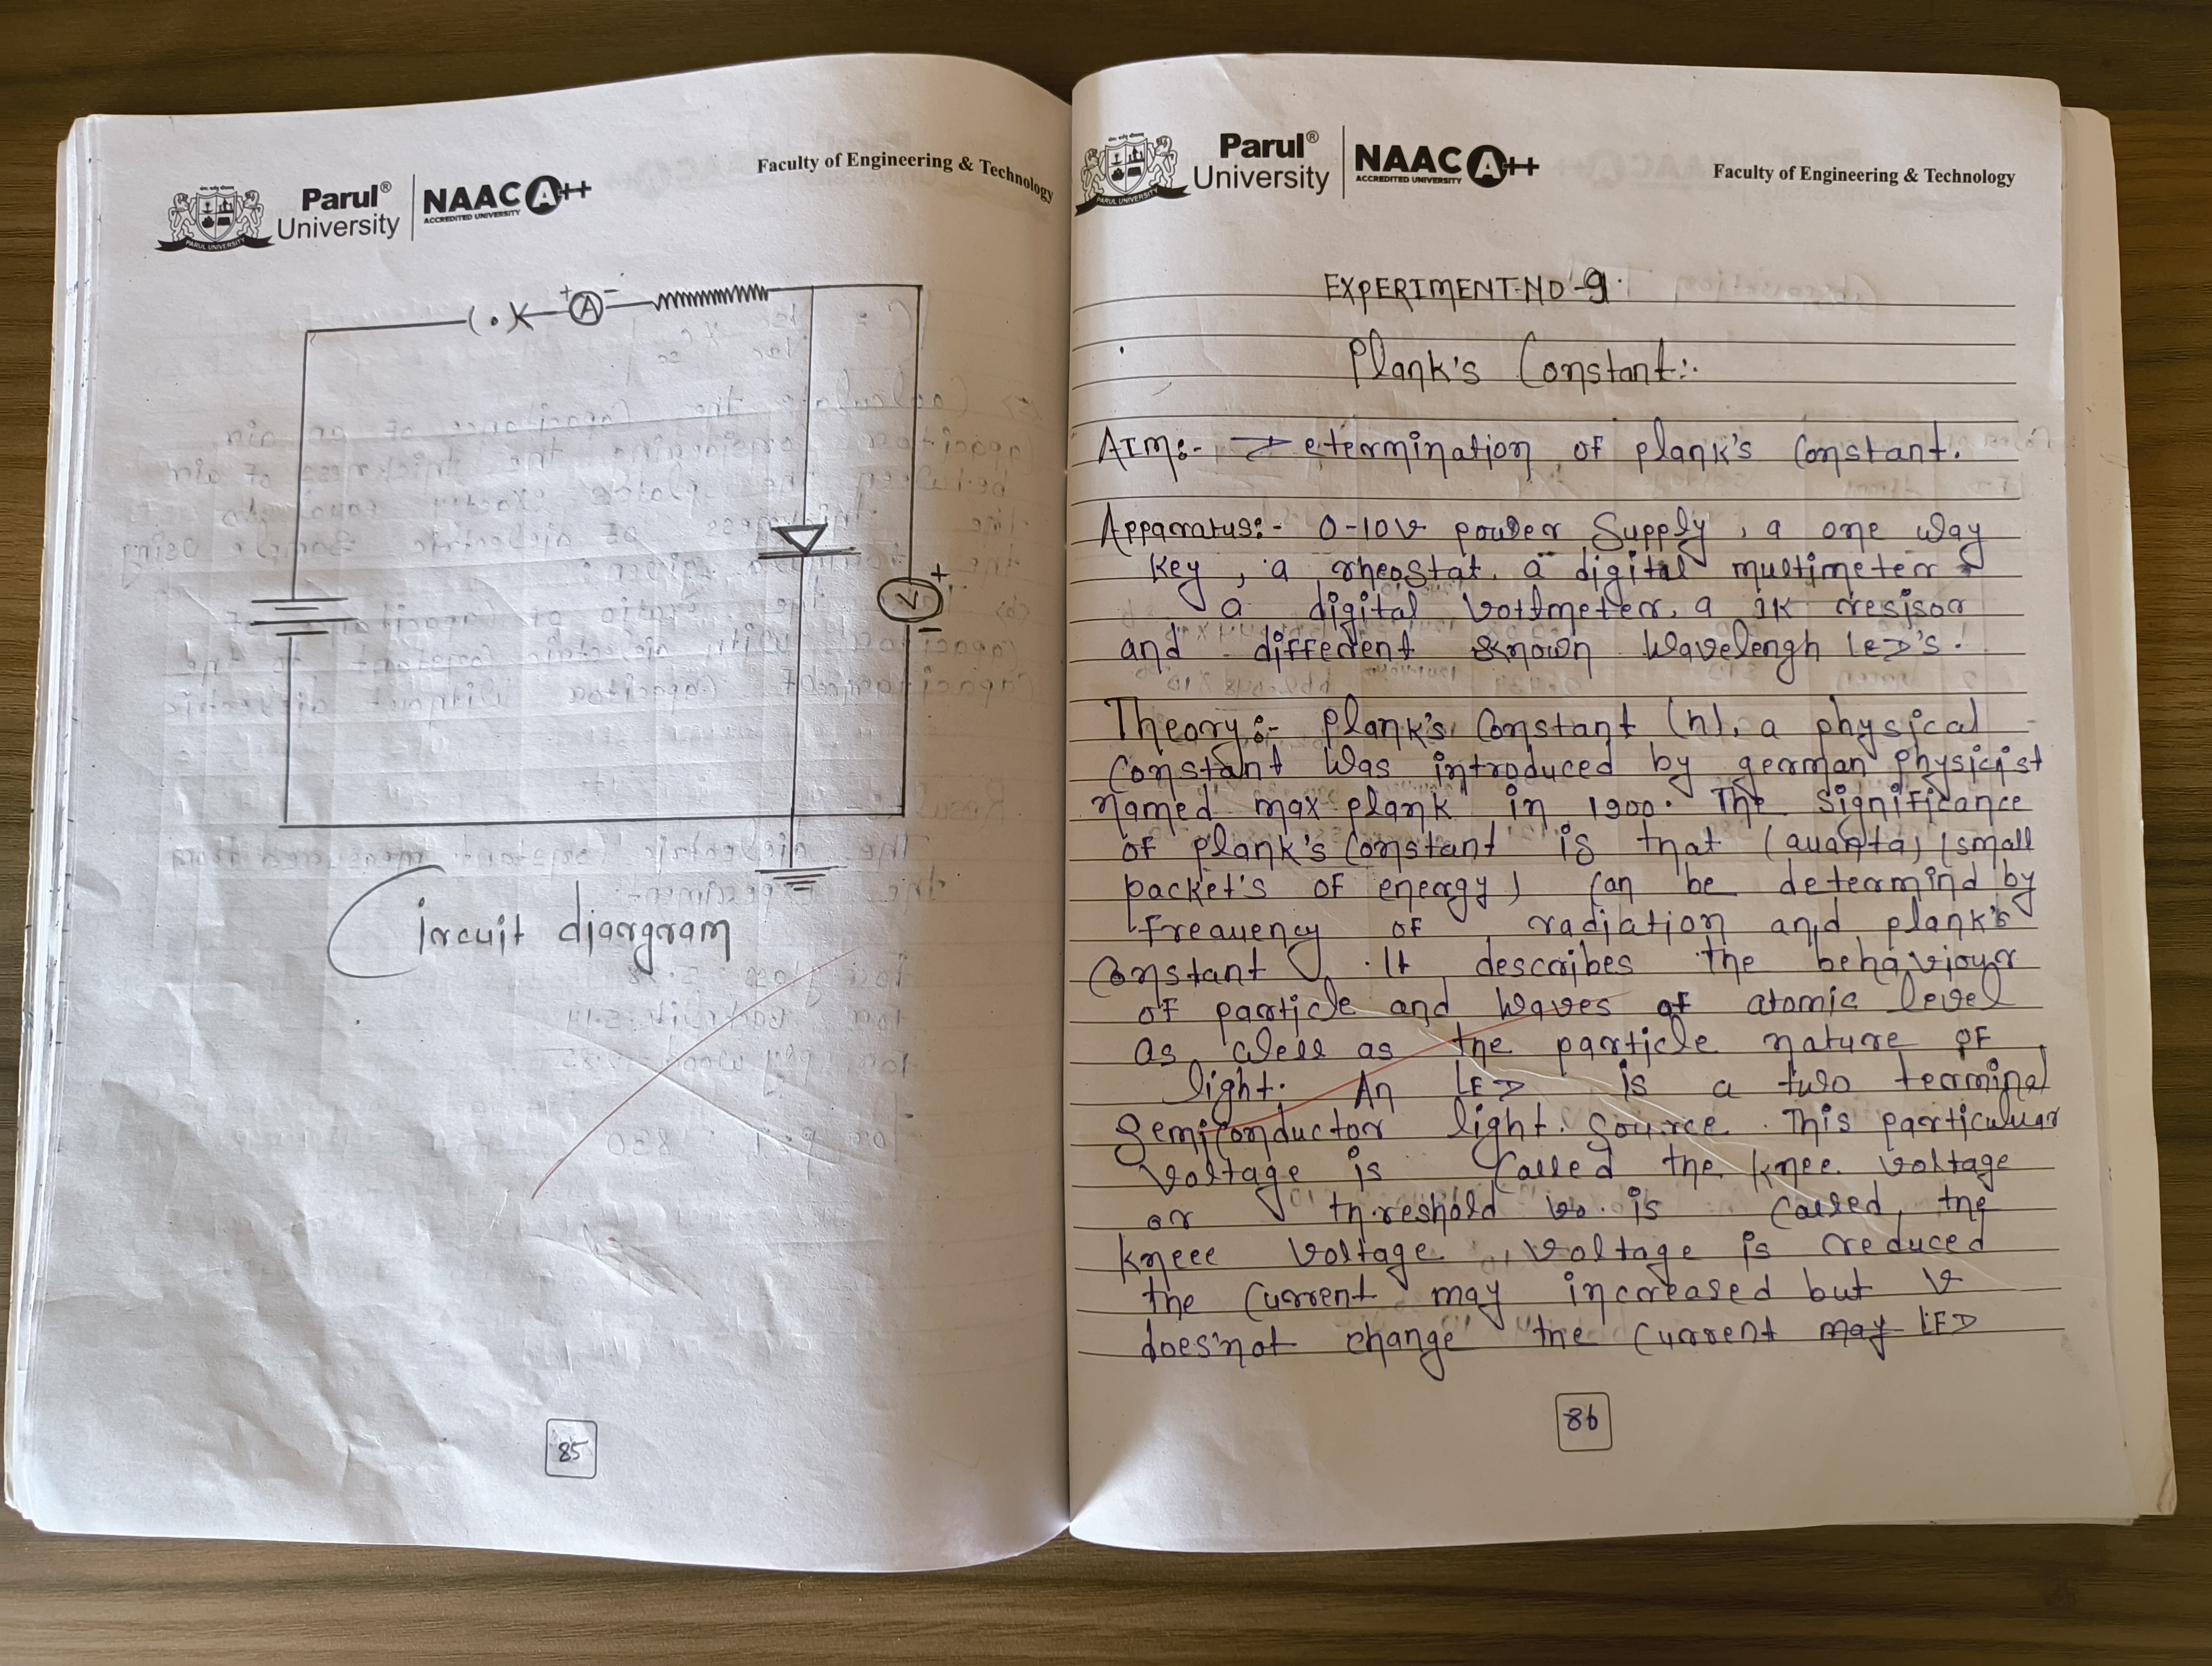 Parul® University
NAAC A++
ACCREDITED UNIVERSITY
PARUL UNIVERSITY
Faculty of Engineering & Technology
+ A -
+
V
-
Circuit diargram
85
Parul® University
NAAC A++
ACCREDITED UNIVERSITY
PARUL UNIVERSITY
Faculty of Engineering & Technology
EXPERIMENT-NO-9.
Plank's Constant:.
AIM:- Determination of plank's Constant.
Apparatus:- 0-10V power Supply, a one way
key, a rheostat, a digital multimeter
a digital Voltmeter, a 1K resisor
and different known Wavelengh LED's.
Theory:- Plank's Constant (h), a physical
Constant Was introduced by german physicist
named max plank in 1900. The significance
of plank's constant is that (quanta) (small
packet's of energy) can be determind by
frequency of radiation and plank's
Constant. It describes the behaviour
of particle and waves of atomic level
as well as the particle nature of
light. An LED is a two terminal
Semiconductor light. Source. This particuluar
voltage is Called the knee voltage
or threshold vo. is called, the
kneee voltage, voltage is reduced
the Current may increased but V
does'not change the current may LED
86